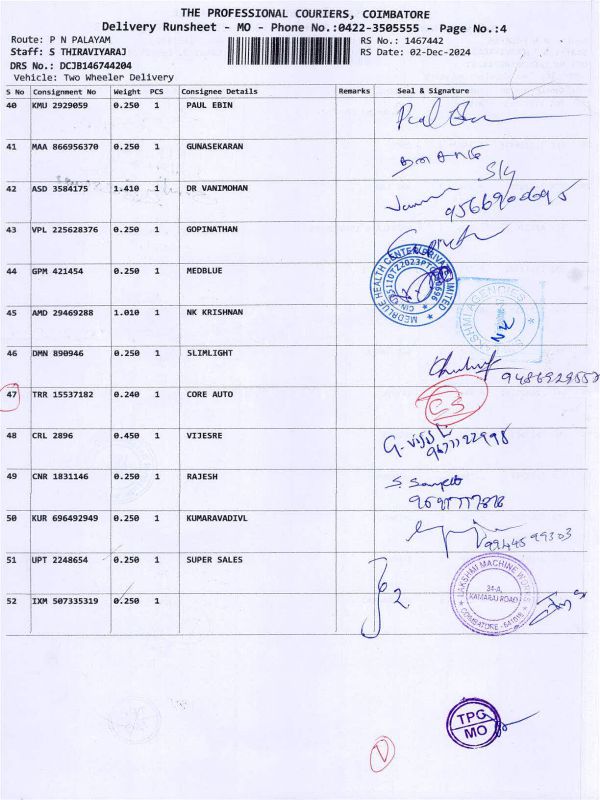 THE PROFESSIONAL COURIERS, COIMBATORE
Delivery Runsheet - MO - Phone No.:0422-3505555 - Page No.:4
Route: P N PALAYAM RS No.: 1467442
Staff: S THIRAVIYARAJ RS Date: 02-Dec-2024
DRS No.: DCJB146744204
Vehicle: Two Wheeler Delivery
S No Consignment No Weight PCS Consignee Details Remarks Seal & Signature
40 KMU 2929059 0.250 1 PAUL EBIN
41 MAA 866956370 0.250 1 GUNASEKARAN
42 ASD 3584175 1.410 1 DR VANIMOHAN
43 VPL 225628376 0.250 1 GOPINATHAN
44 GPM 421454 0.250 1 MEDBLUE
MEDBLUE HEALTH CENTER PRIVATE LIMITED
45 AMD 29469288 1.010 1 NK KRISHNAN
LAKSHMI AGENCIES
46 DMN 890946 0.250 1 SLIMLIGHT
47 TRR 15537182 0.240 1 CORE AUTO
CS
48 CRL 2896 0.450 1 VIJESRE
49 CNR 1831146 0.250 1 RAJESH
50 KUR 696492949 0.250 1 KUMARAVADIVL
9944599303
51 UPT 2248654 0.250 1 SUPER SALES
52 IXM 507335319 0.250 1
LAKSHMI MACHINE WORKS
34-A,
KAMARAJ ROAD
COIMBATORE - 641018
TPG
MO